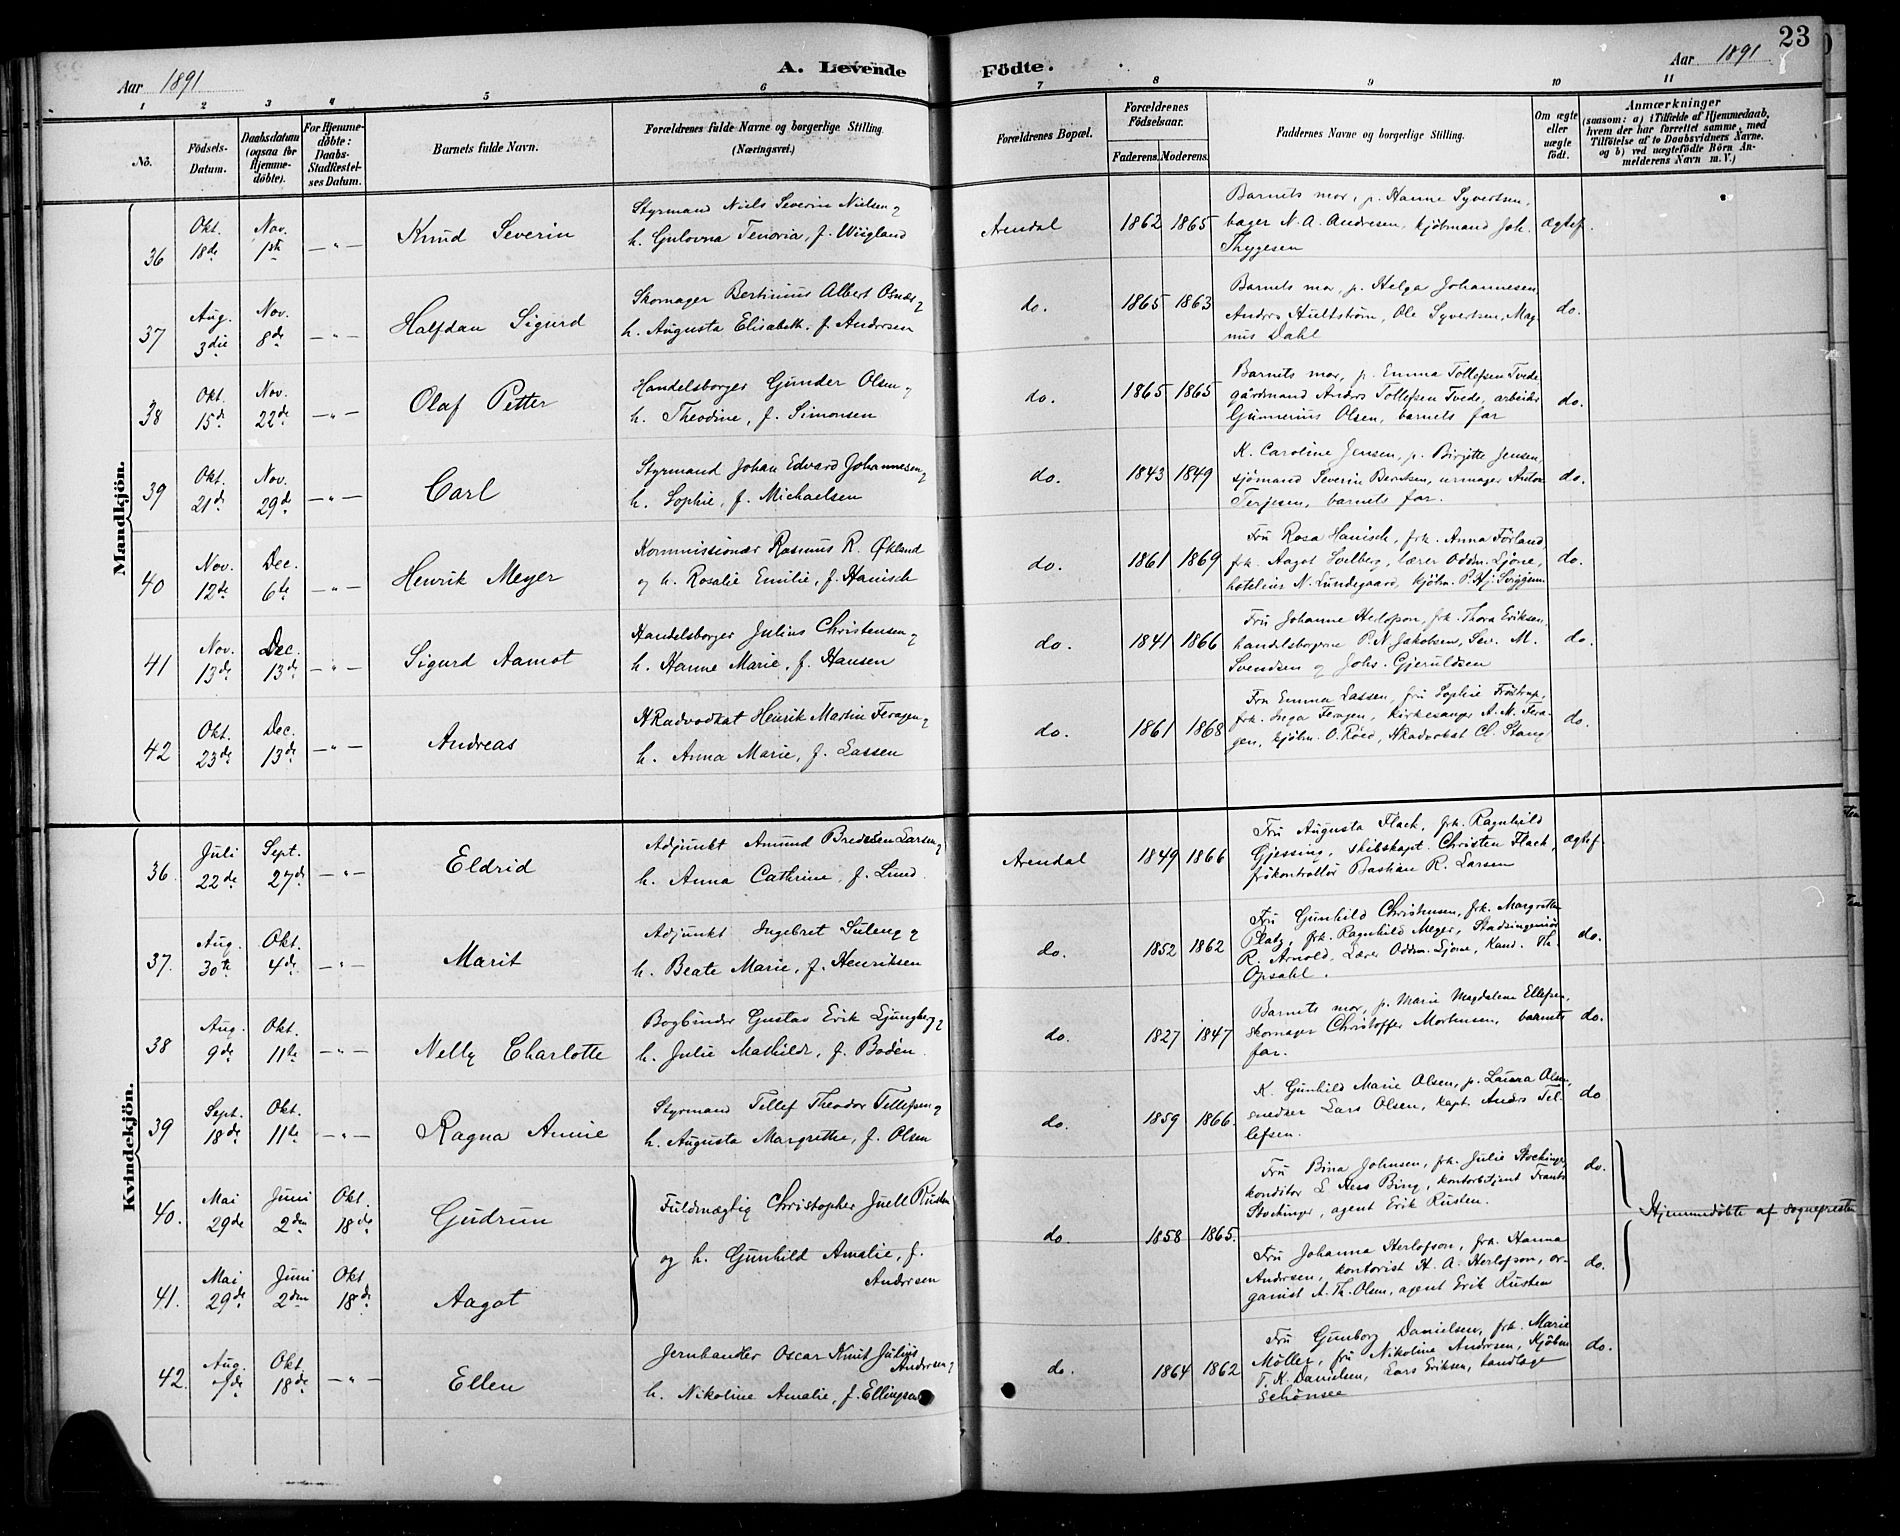 23
Aar 1891
A. Levende Födte.
Aar 1891
1 2 3 4 5 6 7 8 9 10 11
No.
Födsels-Datum.
Daabsdatum (ogsaa for Hjemme-döbte).
For Hjemme-döbte: Daabs-Stadfæstel-ses Datum.
Barnets fulde Navn.
Forældrenes fulde Navne og borgerlige Stilling. (Næringsvei.)
Forældrenes Bopæl.
Forældrenes Födselsaar.
Faderens. Moderens.
Faddernes Navne og borgerlige Stilling.
Om ægte eller uægte födt.
Anmærkninger
(saasom: a) i Tilfælde af Hjemmedaab, hvem der har forrettet samme, med Tilföielse af to Daabsvidners Navne. og b) ved uægtefödte Börn An-melderens Navn m. V.)
Mandkjön.
36 Okt. 18de Nov. 1ste —"— Knud Severin
Styrmand Niels Severin Nielsen og
h. Gulovna Tenoria, f. Wiigland
Arendal 1862 1865
Barnets mor, p. Hanne Syvertsen,
bager N. A. Andresen, kjöbmand Joh.
Thygesen
ægtef.
37 Aug. 3die Nov. 8de —"— Halfdan Sigurd
Skomager Bertinius Albert Osnæs og
h. Augusta Elisabeth, f. Andersen
do. 1865 1863
Barnets mor, p. Helga Johannesen,
Anders Hultström, Ole Syvertsen, Mag-
nus Dahl
do.
38 Okt. 15de Nov. 22de —"— Olaf Petter
Handelsborger Gunder Olsen og
h. Theodine, f. Simonsen
do. 1865 1865
Barnets mor, p. Emma Tollefsen Tvede,
gårdmand Anders Tollefsen Tvede, arbeider
Gunnerius Olsen, barnets far
do.
39 Okt. 21de Nov. 29de —"— Carl
Styrmand Johan Edvard Johannesen og
h. Sophie, f. Michaelsen
do. 1843 1849
K. Caroline Jensen, p. Birgitte Jensen,
sjömand Severin Berntsen, urmager Anton
Terjesen, barnets far.
do.
40 Nov. 12te Dec. 6te —"— Henrik Meyer
Kommissionær Rasmus R. Økland
og h. Rosalie Emilie, f. Hanisch
do. 1861 1869
Fru Rosa Hanisch, frk. Anna Förland,
frk. Aagot Solberg, lærer Oddm. Ljone,
hotelier N. Lundegaard, kjöbm. P. Hj.
do.
41 Nov. 13de Dec. 13de —"— Sigurd Aamot
Handelsborger Julius Christensen og
h. Hanne Marie, f. Hansen
do. 1841 1866
Fru Johanne Herlofson, frk. Thora Eriksen,
handelsborgerne P. N. Jakobsen, Sev. M.
Svendsen og Johs. Gjeruldsen
do.
42 Okt. 23de Dec. 13de —"— Andreas
HRadvokat Henrik Martin Feragen og
h. Anna Marie, f. Lassen
do. 1861 1868
Fru Emma Lassen, fru Sophie Fröstrup,
frk. Inga Feragen, kirkesanger A. M. Fera-
gen, kjöbm. O. Röed, HRadvokat Cl. Stang
do.
Kvindekjön.
36. Juli 22de Sept. 27de —"— Eldrid
Adjunkt Amund Bredesen Larsen og
h. Anna Cathrine, f. Lund.
Arendal 1849 1866
Fru Augusta Flack, frk. Ragnhild
Gjessing, skibskapt. Christen Flack,
frökontrollör Bastian R. Larsen
ægtef
37. Aug. 30te Okt. 4de —"— Marit
Adjunkt Ingebret Suleng og
h. Beate Marie, f. Henriksen
do. 1852 1862
Fru Gunhild Christensen, frk. Margrethe
Platz, frk. Ragnhild Meyer, Stadsingeniör
R. Arnold, Lærer Oddm. Ljone, Kand. Th.
Opsahl.
do.
38 Aug. 9de Okt. 11te —"— Nelly Charlotte
Bogbinder Gustav Erik Ljungberg og
h. Julie Mathilde, f. Bodén.
do. 1827 1847
Barnets mor, p. Marie Magdalene Ellefsen,
skomager Christoffer Mortensen, barnets
far.
do.
39 Sept. 18de Okt. 11te —"— Ragna Annie
Styrmand Tellef Theodor Tellefsen og
h. Augusta Margrethe, f. Olsen
do. 1859 1866.
K. Gunhild Marie Olsen, p. Laura Olsen,
smedsv. Lars Olsen, kapt. Anders Tel-
lefsen.
do
40. Mai 29de Juni 2den Okt. 18de Gudrun
Fuldmægtig Christopher Juell Rusten
og h. Gunhild Amalie, f.
Andersen
do. 1858 1865.
Fru Bina Johnsen, frk. Julie Stockinger,
konditor L. Hess Bing, kontorbetjent Frants
Stockinger, agent Erik Rusten.
do.
Hjemmedøbte af sognepresten
41. Mai 29de Juni 2den Okt 18de Aagot
Fru Johanna Herlofson, frk. Hanna
Andersen, kontorist H. A. Herlofson, or-
ganist A. Th. Olsen, agent Erik Rusten
do.
42. Aug. 7de Okt. 18de —"— Ellen
Jernhandler Oscar Knut Julius
Andersen og
h. Nikoline Amalie, f. Ellingsen
do. 1864 1862
Fru Gunborg Danielsen, frk. Marie
Möller, fru Nikoline Andersen, Kjöbm
T. K. Danielsen, Lars Eriksen, tandlæge
Schönsee
do.